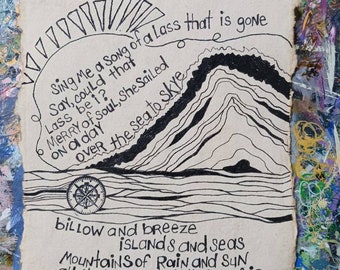 Sing me a song of a Lass that is gone
Say, could that
Lass be i?
Merry of soul, she sailed
on a day
over the sea to Skye
billow and breeze
islands and seas
Mountains of Rain and Sun